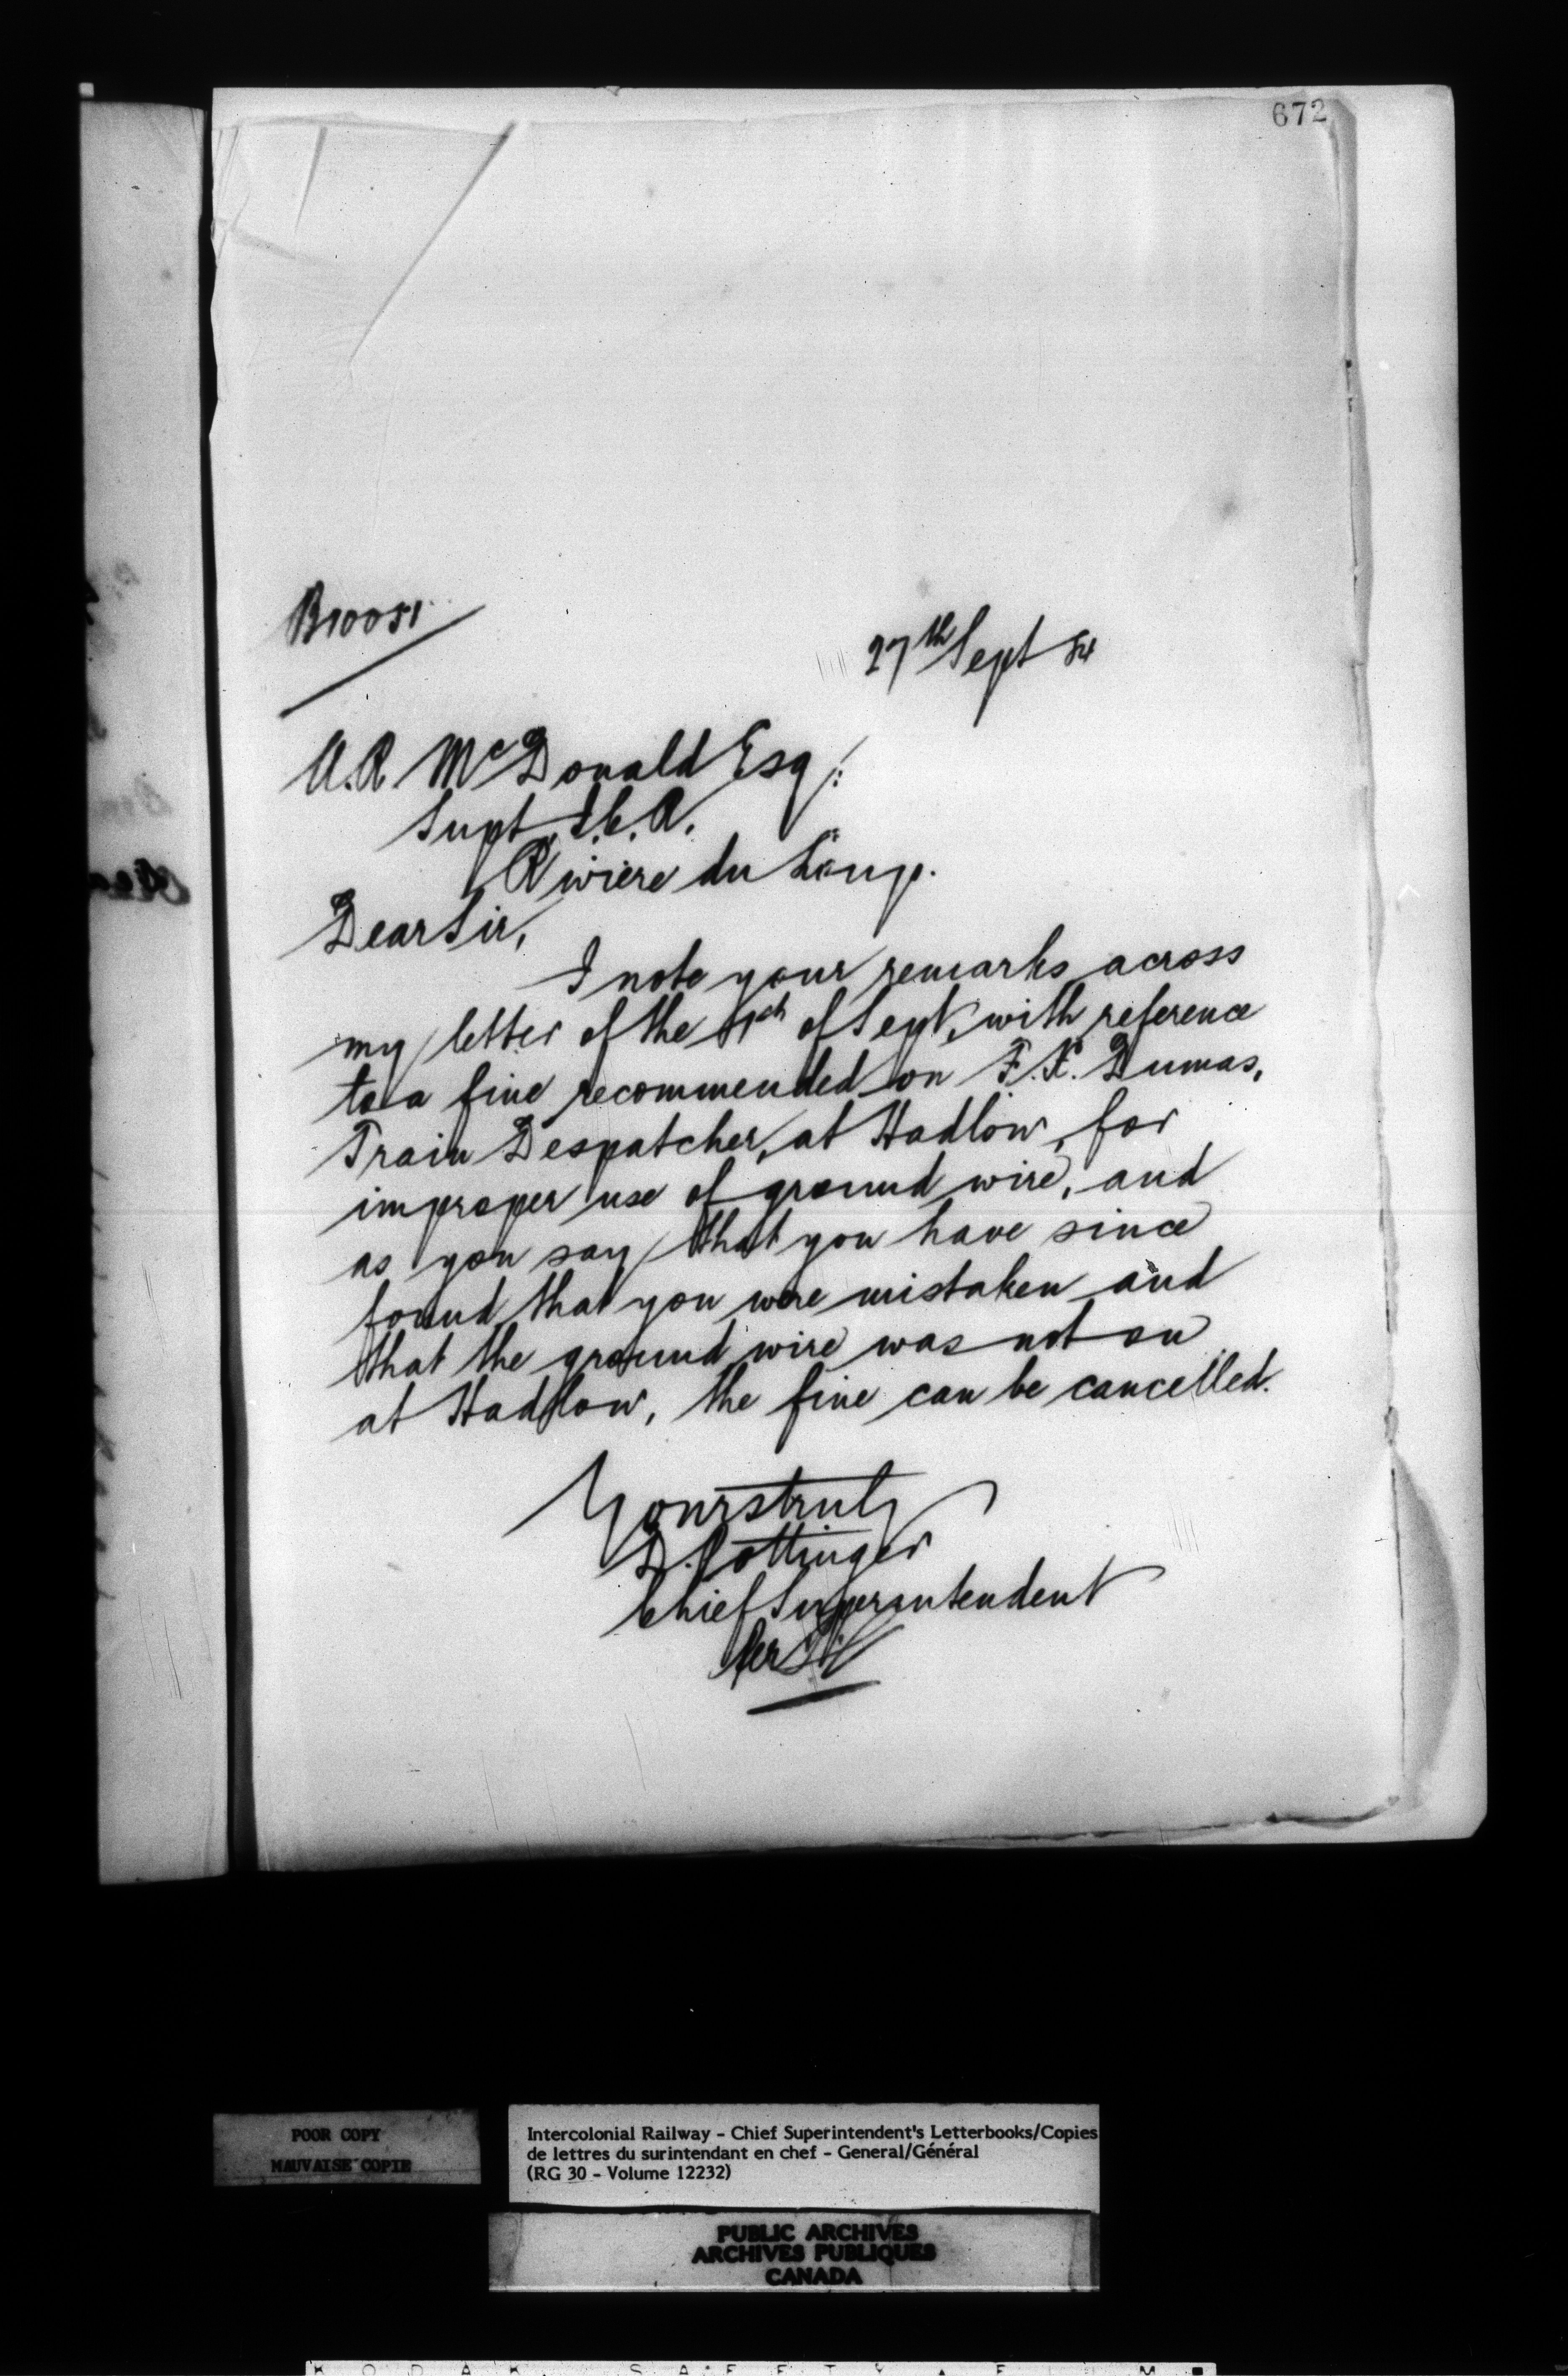 672
B10051
27th Sept 84
A.R. McDonald Esq:
Supt. I.C.R.
Riviere du Loup.
Dear Sir,
I note your remarks across
my letter of the of Sept, with reference
to a fine recommended on F.X. Dumas,
Train Despatcher, at Hadlow, for
improper use of ground wire, and
as you say that you have since
found that you were mistaken and
that the ground wire was not on
at Hadlow, the fine can be cancelled.
Yours truly
D. Pottinger
Chief Superintendent
Per
POOR COPY
MAUVAISE COPIE
Intercolonial Railway - Chief Superintendent's Letterbooks/Copies
de lettres du surintendant en chef - General/Général
(RG 30 - Volume 12232)
PUBLIC ARCHIVES
ARCHIVES PUBLIQUES
CANADA
KODAK SAFETY FILM